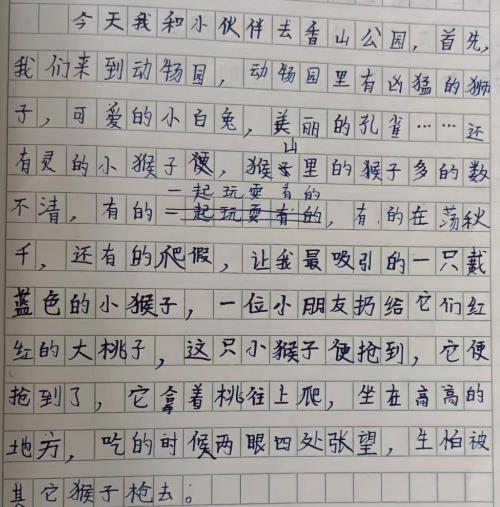 今天我和小伙伴去香山公园，首先，
我们来到动物园，动物园里有凶猛的狮
子，可爱的小白兔，美丽的孔雀……还
山
有灵的小猴子便，猴里的猴子多的数
一起玩耍有的
不清，有的一起玩耍有的，有的在荡秋
千，还有的爬假，让我最吸引的一只戴
蓝色的小猴子，一位小朋友扔给它们红
红的大桃子，这只小猴子便抢到，它便
抢到了，它拿着桃往上爬，坐在高高的
地方，吃的时候两眼四处张望，生怕被
其它猴子枪去。